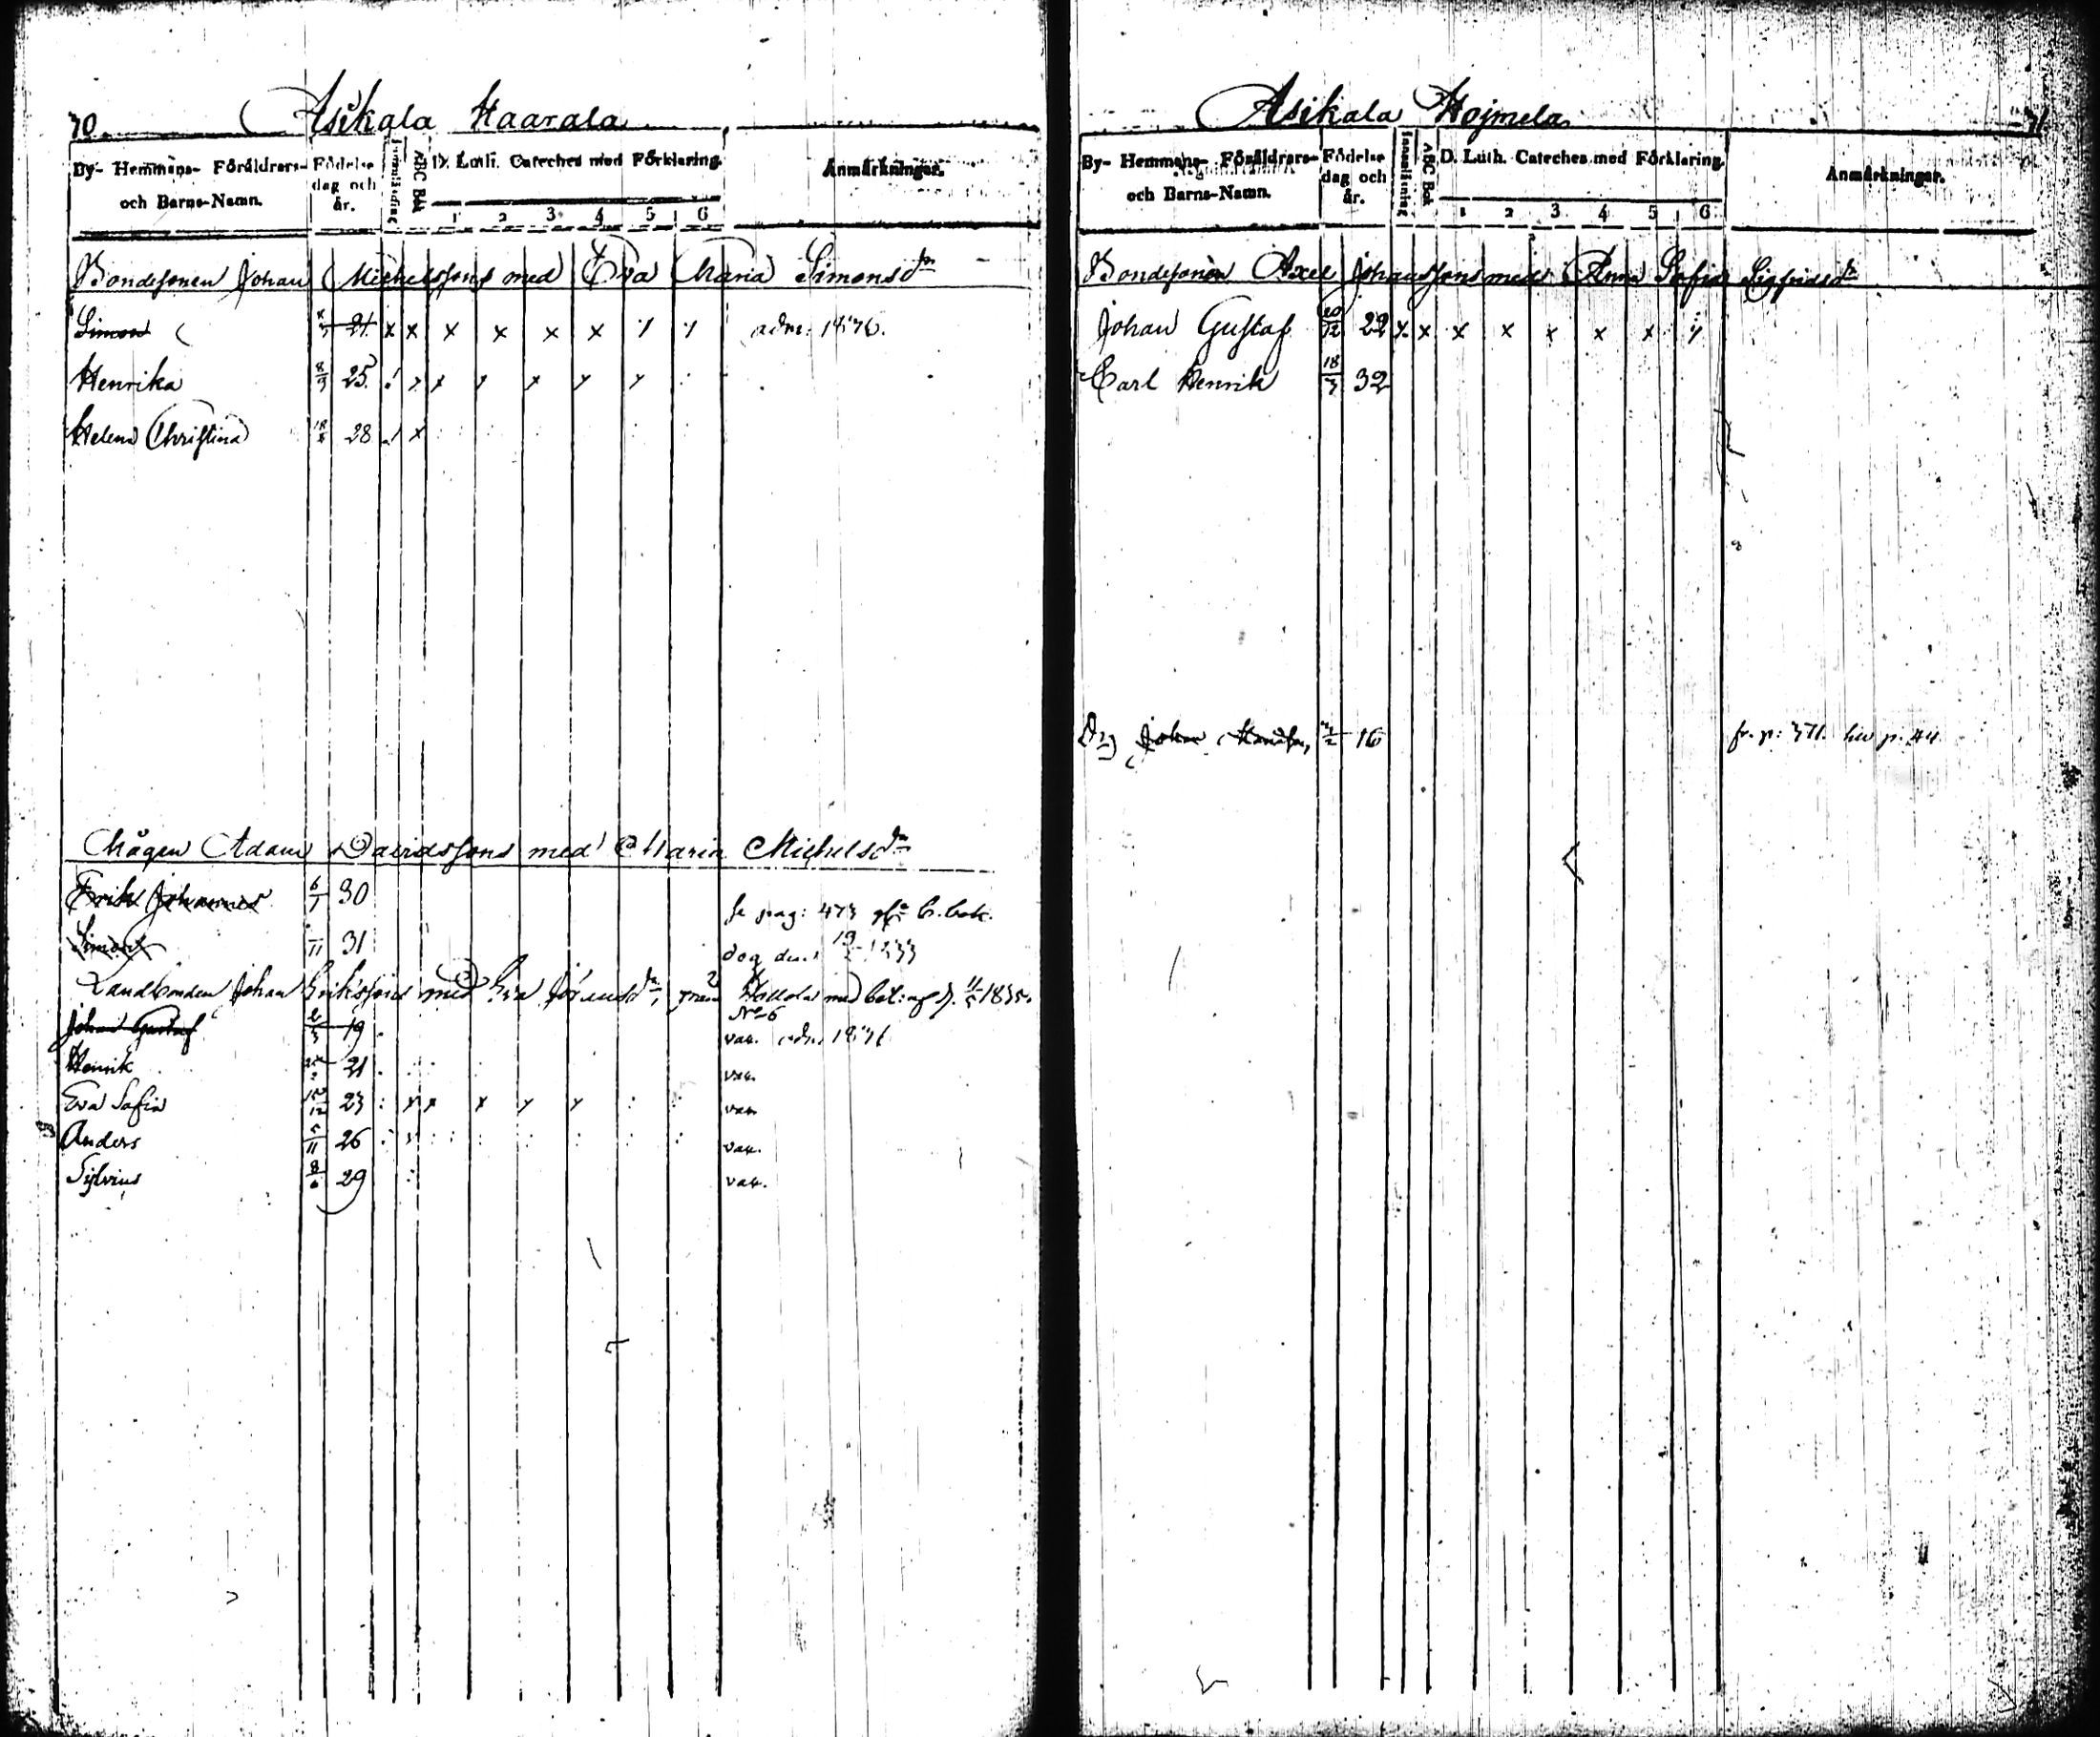 70. Asikala Haarala
By- Hemmans- Föräldrars- och Barns-Namn. Födelse dag och år. Innanläsning ABC Bok D. Luth. Cateches med Förklaring. 1 2 3 4 5 6 Anmärkningar.
Bondesonen Johan Michelssons med Eva Maria Simonsdr
Simon 21 x x x x x x adm: 1836.
Henrika 8/9 25
Helena Christina 28
Mågen Adam Davidssons med Maria Michelsdr
Erik Johannes 6/1 30 se pag: 473
Simon 11 31 dog den 1833
Landbonden Johan Erikssons med Eva från Hollola med bet: 1835.
No 6
Johan Gustaf 19 vac. adm. 1836
Henrik 21 vac.
Eva Sofia 12 23 vac.
Anders 5/11 26 vac.
Sylvius 8/6 29 vac.
Asikala Hojmela 71
By- Hemmans- Föräldrars- och Barns-Namn. Födelse dag och år. Innanläsning ABC Bok D. Luth. Cateches med Förklaring. 1 2 3 4 5 6 Anmärkningar.
Bondesonen Axel Johanssons med Anna Sofia Sigfridsdr
Johan Gustaf 20/12 22 x x x x x x x
Carl Henrik 18/3 32
Drg Johan 16 fr. p: 371.